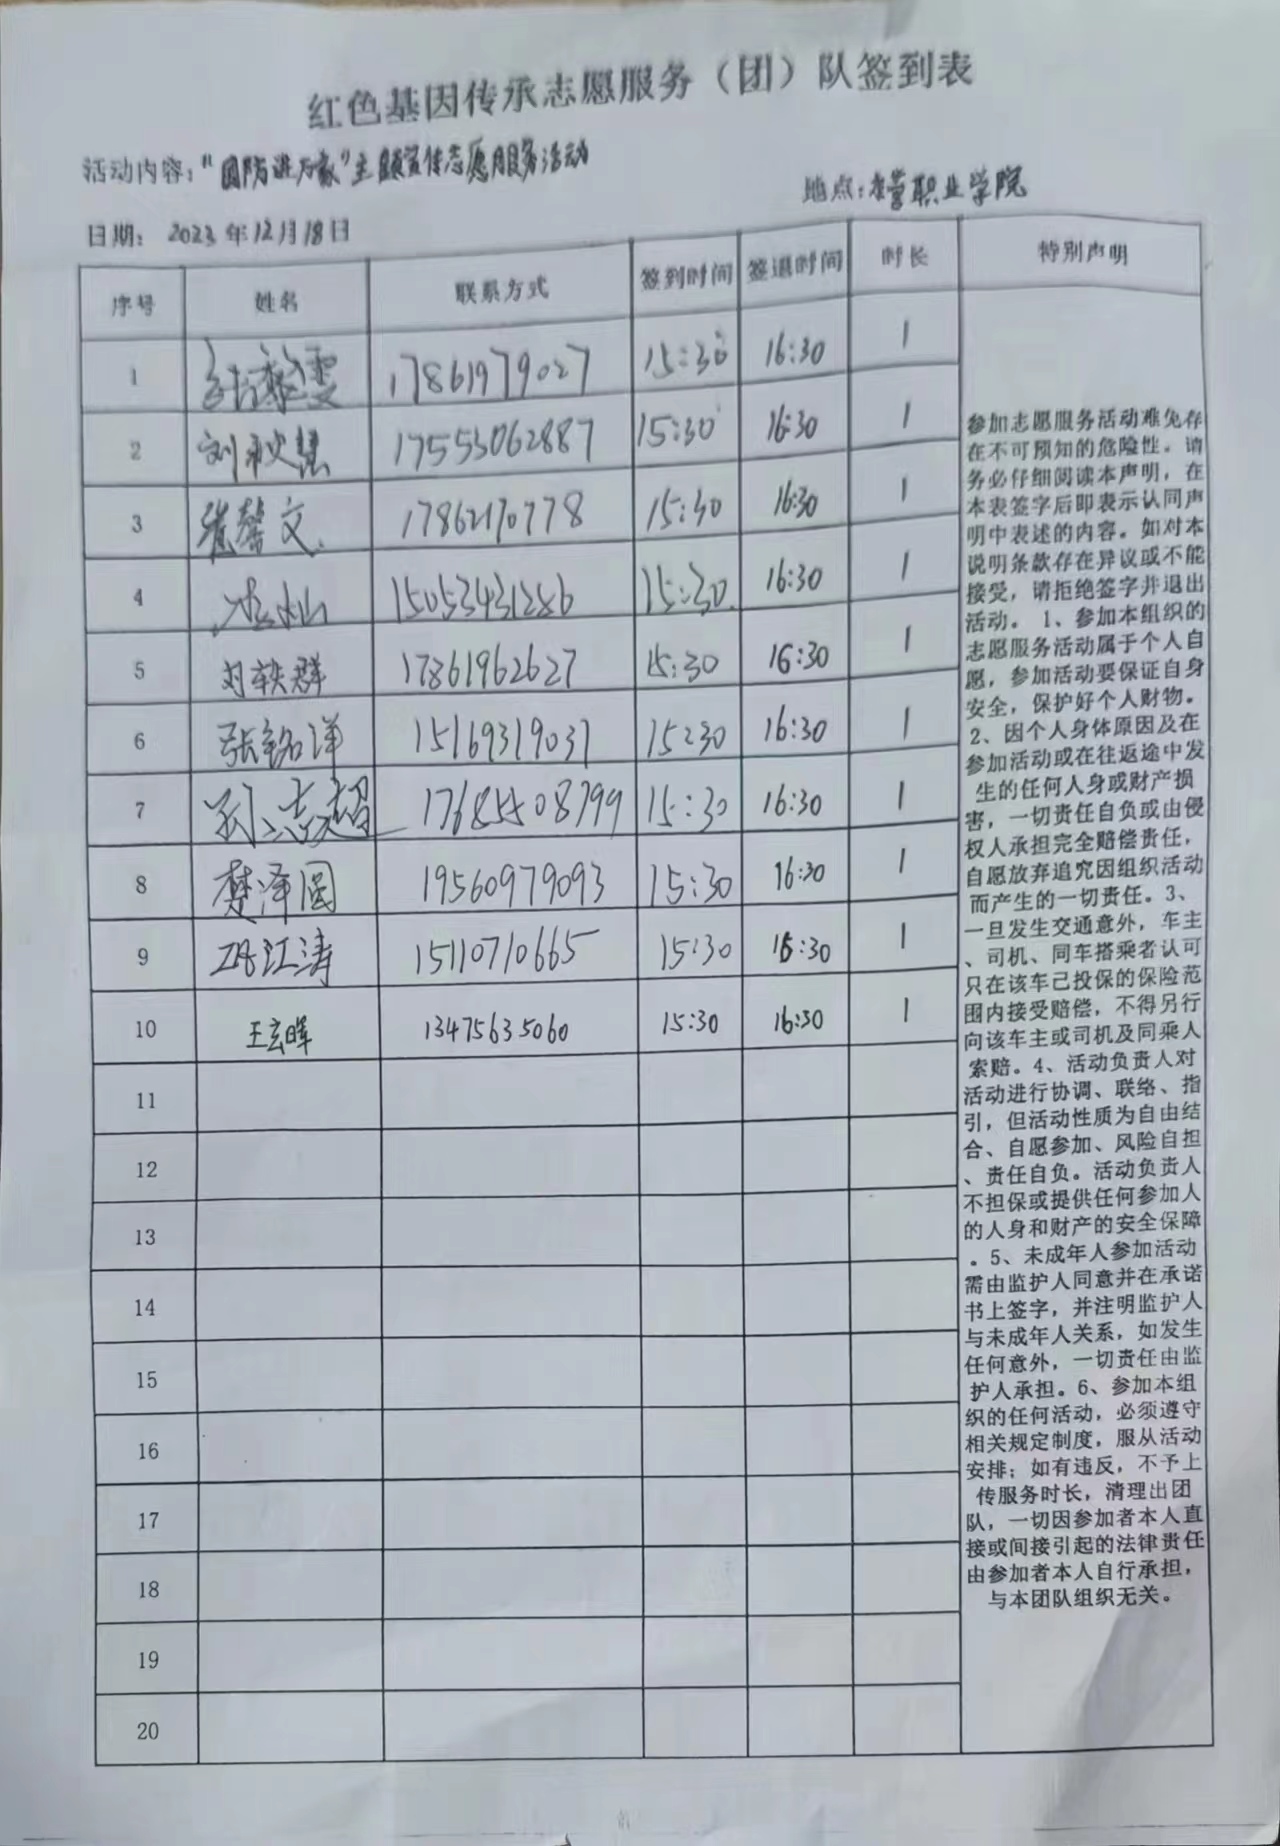 红色基因传承志愿服务（团）队签到表
活动内容："国防进万家"主题宣传志愿服务活动
地点：东营职业学院
日期：2023年12月18日
序号 姓名 联系方式 签到时间 签退时间 时长 特别声明
1 17861979027 15:30 16:30 1
2 刘秋慧 17553062887 15:30 16:30 1
3 张馨文 17862170778 15:30 16:30 1
4 15053431286 15:30 16:30 1
5 刘轶群 17861962627 15:30 16:30 1
6 张铭洋 15169319031 15:30 16:30 1
7 孙志超 17685508799 15:30 16:30 1
8 楚泽圆 19560979093 15:30 16:30 1
9 江涛 15110710665 15:30 16:30 1
10 王玄晖 13475635060 15:30 16:30 1
11
12
13
14
15
16
17
18
19
20
参加志愿服务活动难免存
在不可预知的危险性。请
务必仔细阅读本声明，在
本表签字后即表示认同声
明中表述的内容。如对本
说明条款存在异议或不能
接受，请拒绝签字并退出
活动。1、参加本组织的
志愿服务活动属于个人自
愿，参加活动要保证自身
安全，保护好个人财物。
2、因个人身体原因及在
参加活动或在往返途中发
生的任何人身或财产损
害，一切责任自负或由侵
权人承担完全赔偿责任，
自愿放弃追究因组织活动
而产生的一切责任。3、
一旦发生交通意外，车主
、司机、同车搭乘者认可
只在该车已投保的保险范
围内接受赔偿，不得另行
向该车主或司机及同乘人
索赔。4、活动负责人对
活动进行协调、联络、指
引，但活动性质为自由结
合、自愿参加、风险自担
、责任自负。活动负责人
不担保或提供任何参加人
的人身和财产的安全保障
。5、未成年人参加活动
需由监护人同意并在承诺
书上签字，并注明监护人
与未成年人关系，如发生
任何意外，一切责任由监
护人承担。6、参加本组
织的任何活动，必须遵守
相关规定制度，服从活动
安排；如有违反，不予上
传服务时长，清理出团
队，一切因参加者本人直
接或间接引起的法律责任
由参加者本人自行承担，
与本团队组织无关。